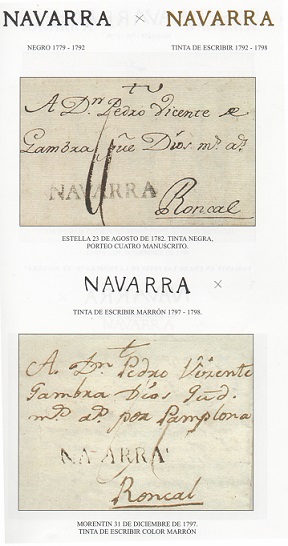 NAVARRA × NAVARRA
NEGRO 1779 - 1792 TINTA DE ESCRIBIR 1792 - 1798
A Dn Pedro Vicente
Gambra que Dios ms as
NAVARRA
Roncal
ESTELLA 23 DE AGOSTO DE 1782. TINTA NEGRA,
PORTEO CUATRO MANUSCRITO.
NAVARRA ×
TINTA DE ESCRIBIR MARRÓN 1797 - 1798.
A Dn Pedro Vizente
Gambra Dios Gud.
ms as por Pamplona
NAVARRA
Roncal
MORENTIN 31 DE DICIEMBRE DE 1797.
TINTA DE ESCRIBIR COLOR MARRÓN